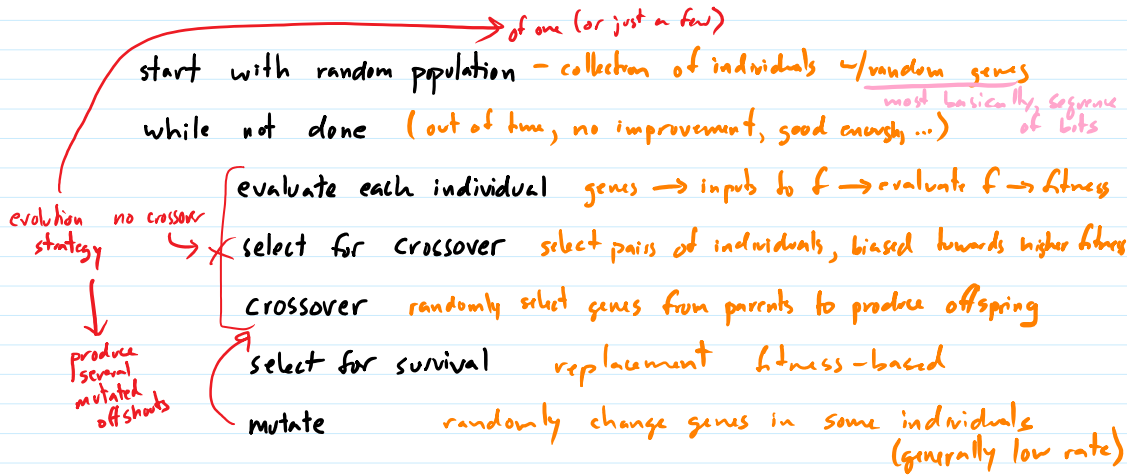 of one (or just a few)
start with random population - collection of individuals w/random genes
most basically, sequence
of bits
while not done (out of time, no improvement, good enough, ...)
evaluate each individual genes → inputs to f → evaluate f → fitness
evolution
strategy
no crossover
select for crossover select pairs of individuals, biased towards higher fitness
crossover randomly select genes from parents to produce offspring
produce
several
mutated
offshoots
select for survival replacement fitness-based
mutate randomly change genes in some individuals
(generally low rate)